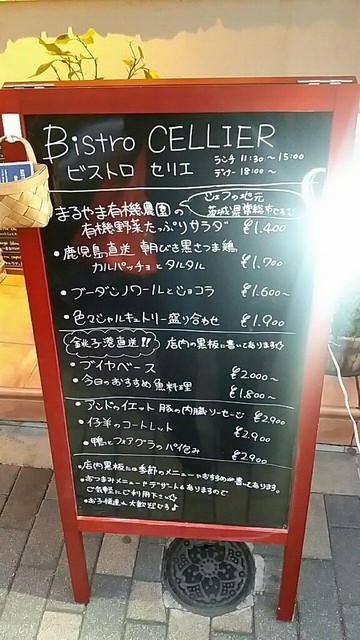 Bistro CELLIER
ビストロ セリエ
ランチ 11:30～15:00
ディナー 18:00～
シェフの地元
茨城県常総市です
まるやま有機農園の
有機野菜たっぷりサラダ ¥1.400
・鹿児島直送 朝びき黒さつま鶏
カルパッチョとタルタル ¥1.700
・ブーダンノワールとショコラ ¥1.600～
・色々シャルキュトリー盛り合わせ ¥1.900
銚子港直送!! 店内の黒板に書いてあります☆
・ブイヤベース ¥2000～
・今日のおすすめ魚料理 ¥1.800～
・アンドゥイエット 豚の内臓ソーセージ ¥2900
・仔羊のコートレット ¥2.900
・鴨とフォアグラのパイ包み ¥2900
・店内黒板には季節のメニューやおすすめが書いてあります。
・おつまみメニューやデザートもありますので
ご気軽にご利用下さい☆
・お子様連れ大歓迎です♪